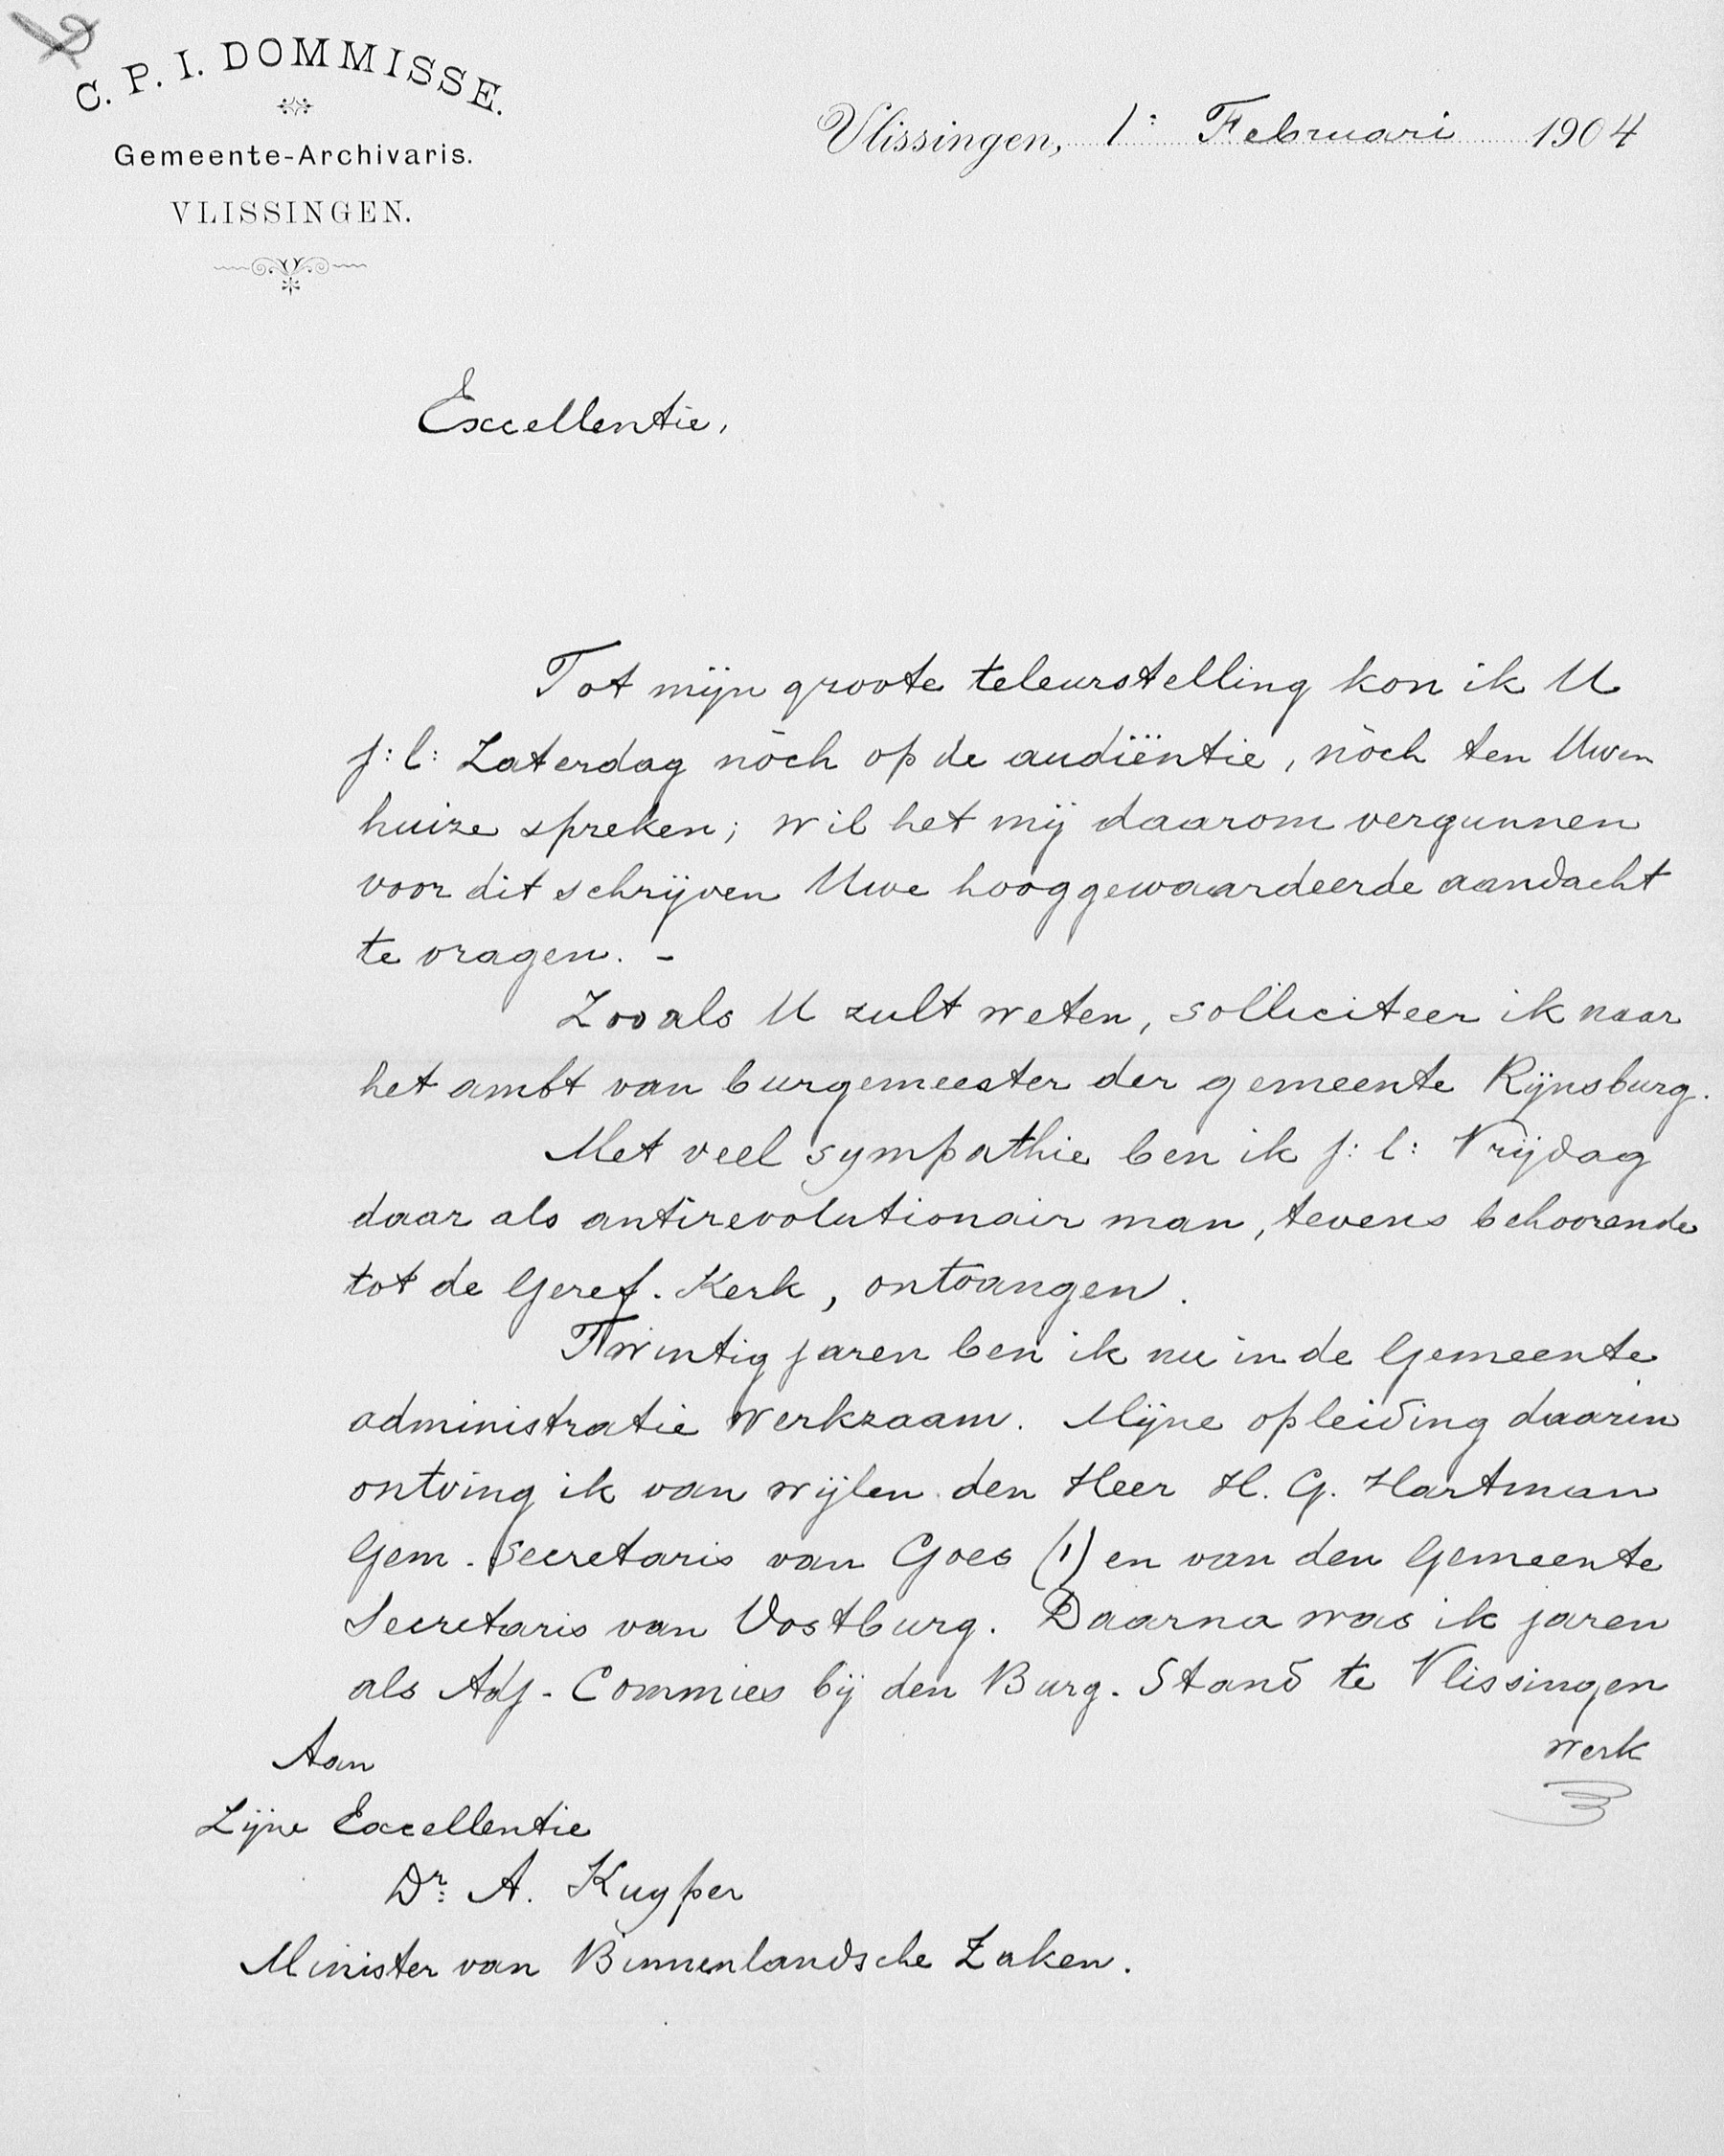 C. P. I. DOMMISSE.
Gemeente-Archivaris.
VLISSINGEN.
Vlissingen, 1: Februari 1904
Excellentie,
Tot mijn groote teleurstelling kon ik U
j:l: Zaterdag nòch op de audiëntie, nòch ten Uwen
huize spreken; wil het mij daarom vergunnen
voor dit schrijven Uwe hooggewaardeerde aandacht
te vragen. -
Zooals U zult weten, solliciteer ik naar
het ambt van burgemeester der gemeente Rijnsburg.
Met veel sympathie ben ik j:l: Vrijdag
daar als antirevolutionair man, tevens behoorende
tot de Geref. Kerk, ontvangen.
Twintig jaren ben ik nu in de Gemeente
administratie werkzaam. Mijne opleiding daarin
ontving ik van wijlen den Heer H. G. Hartman
Gem. Secretaris van Goes (1) en van den Gemeente
Secretaris van Oostburg. Daarna was ik jaren
als Adj- Commies bij den Burg. Stand te Vlissingen
werk
Aan
Zijne Excellentie
Dr: A. Kuyper
Minister van Binnenlandsche Zaken.